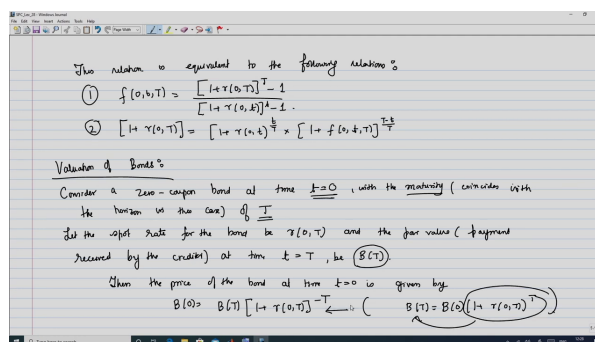 SPC_Lec_28 - Windows Journal
File Edit View Insert Actions Tools Help
Page Width
This relation is equivalent to the following relations :
① f(0,t,T) = [1+ r(0,T)]^T - 1 / [1+ r(0,t)]^t - 1 .
② [1+ r(0,T)] = [1+ r(0,t)]^{t/T} × [1+ f(0,t,T)]^{(T-t)/T}
Valuation of Bonds :
Consider a zero-coupon bond at time t=0 , with the maturity ( coincides with
the horizon in this case) of T
Let the spot rate for the bond be r(0,T) and the par value ( payment
received by the creditor) at time t = T, be B(T).
Then the price of the bond at time t=0 is given by
B(0) = B(T) [1+ r(0,T)]^{-T} ( B(T) = B(0) (1+ r(0,T))^T )